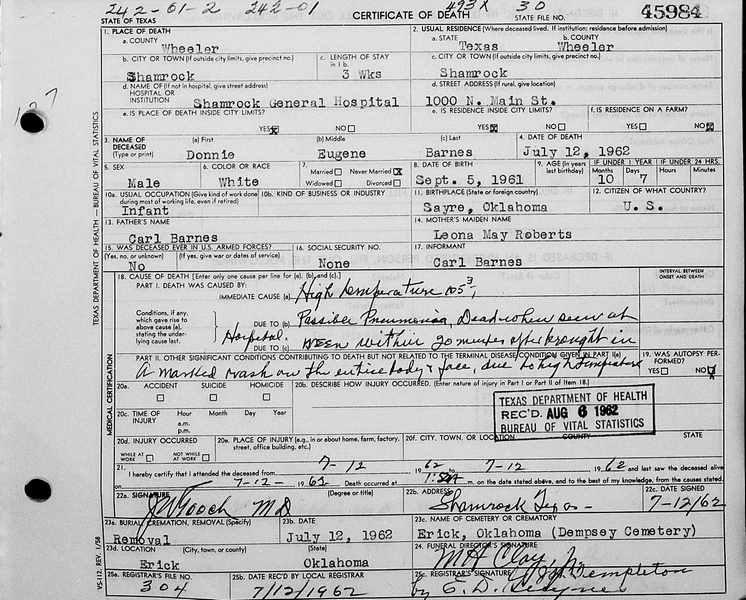 242-01-2 242-01 493X 30
STATE OF TEXAS CERTIFICATE OF DEATH STATE FILE NO. 45984
1. PLACE OF DEATH 2. USUAL RESIDENCE (Where deceased lived. If institution: residence before admission)
a. COUNTY Wheeler a. STATE Texas b. COUNTY Wheeler
b. CITY OR TOWN (If outside city limits, give precinct no.) Shamrock c. LENGTH OF STAY in 1 b. 3 Wks c. CITY OR TOWN (If outside city limits, give precinct no.) Shamrock
d. NAME OF (If not in hospital, give street address) HOSPITAL OR INSTITUTION Shamrock General Hospital d. STREET ADDRESS (If rural, give location) 1000 N. Main St.
e. IS PLACE OF DEATH INSIDE CITY LIMITS? YES NO e. IS RESIDENCE INSIDE CITY LIMITS? YES NO f. IS RESIDENCE ON A FARM? YES NO
3. NAME OF DECEASED (Type or print) (a) First Donnie (b) Middle Eugene (c) Last Barnes 4. DATE OF DEATH July 12, 1962
5. SEX Male 6. COLOR OR RACE White 7. Married Never Married Widowed Divorced 8. DATE OF BIRTH Sept. 5, 1961 9. AGE (In years last birthday) IF UNDER 1 YEAR Months 10 Days 7 IF UNDER 24 HRS. Hours Minutes
10a. USUAL OCCUPATION (Give kind of work done during most of working life, even if retired) Infant 10b. KIND OF BUSINESS OR INDUSTRY 11. BIRTHPLACE (State or foreign country) Sayre, Oklahoma 12. CITIZEN OF WHAT COUNTRY? U. S.
13. FATHER'S NAME Carl Barnes 14. MOTHER'S MAIDEN NAME Leona May Roberts
15. WAS DECEASED EVER IN U.S. ARMED FORCES? (Yes, no, or unknown) (If yes, give war or dates of service) No 16. SOCIAL SECURITY NO. None 17. INFORMANT Carl Barnes
18. CAUSE OF DEATH [Enter only one cause per line for (a), (b), and (c).] INTERVAL BETWEEN ONSET AND DEATH
PART I. DEATH WAS CAUSED BY:
IMMEDIATE CAUSE (a) High temperature 105 3
Conditions, if any, which gave rise to above cause (a), stating the underlying cause last. DUE TO (b) Possible Pneumonia, Dead when seen at
Hospital. DUE TO (c) seen within 20 minutes after brought in
PART II. OTHER SIGNIFICANT CONDITIONS CONTRIBUTING TO DEATH BUT NOT RELATED TO THE TERMINAL DISEASE CONDITION GIVEN IN PART I(a) 19. WAS AUTOPSY PERFORMED? YES NO
A marked rash on the entire body & face, due to high temperature
20a. ACCIDENT SUICIDE HOMICIDE 20b. DESCRIBE HOW INJURY OCCURRED. (Enter nature of injury in Part I or Part II of Item 18.)
20c. TIME OF INJURY Hour Month Day Year a.m. p.m.
TEXAS DEPARTMENT OF HEALTH
REC'D. AUG 6 1962
BUREAU OF VITAL STATISTICS
20d. INJURY OCCURRED WHILE AT WORK NOT WHILE AT WORK 20e. PLACE OF INJURY (e.g., in or about home, farm, factory, street, office building, etc.) 20f. CITY, TOWN, OR LOCATION COUNTY STATE
21. I hereby certify that I attended the deceased from 7-12 1962 to 7-12 1962 and last saw the deceased alive
on 7-12- 1962 Death occurred at m. on the date stated above, and to the best of my knowledge, from the causes stated.
22a. SIGNATURE (Degree or title) Gooch MD 22b. ADDRESS Shamrock Texas - 22c. DATE SIGNED 7-12/62
23a. BURIAL, CREMATION, REMOVAL (Specify) Removal 23b. DATE July 12, 1962 23c. NAME OF CEMETERY OR CREMATORY Erick, Oklahoma (Dempsey Cemetery)
23d. LOCATION (City, town, or county) Erick (State) Oklahoma 24. FUNERAL DIRECTOR'S SIGNATURE M H Clay, Jr.
25a. REGISTRAR'S FILE NO. 304 25b. DATE REC'D BY LOCAL REGISTRAR 7/12/1962 25c. REGISTRAR'S SIGNATURE Templeton
by E. D.
TEXAS DEPARTMENT OF HEALTH — BUREAU OF VITAL STATISTICS
MEDICAL CERTIFICATION
VS-112, REV. 1/58
127